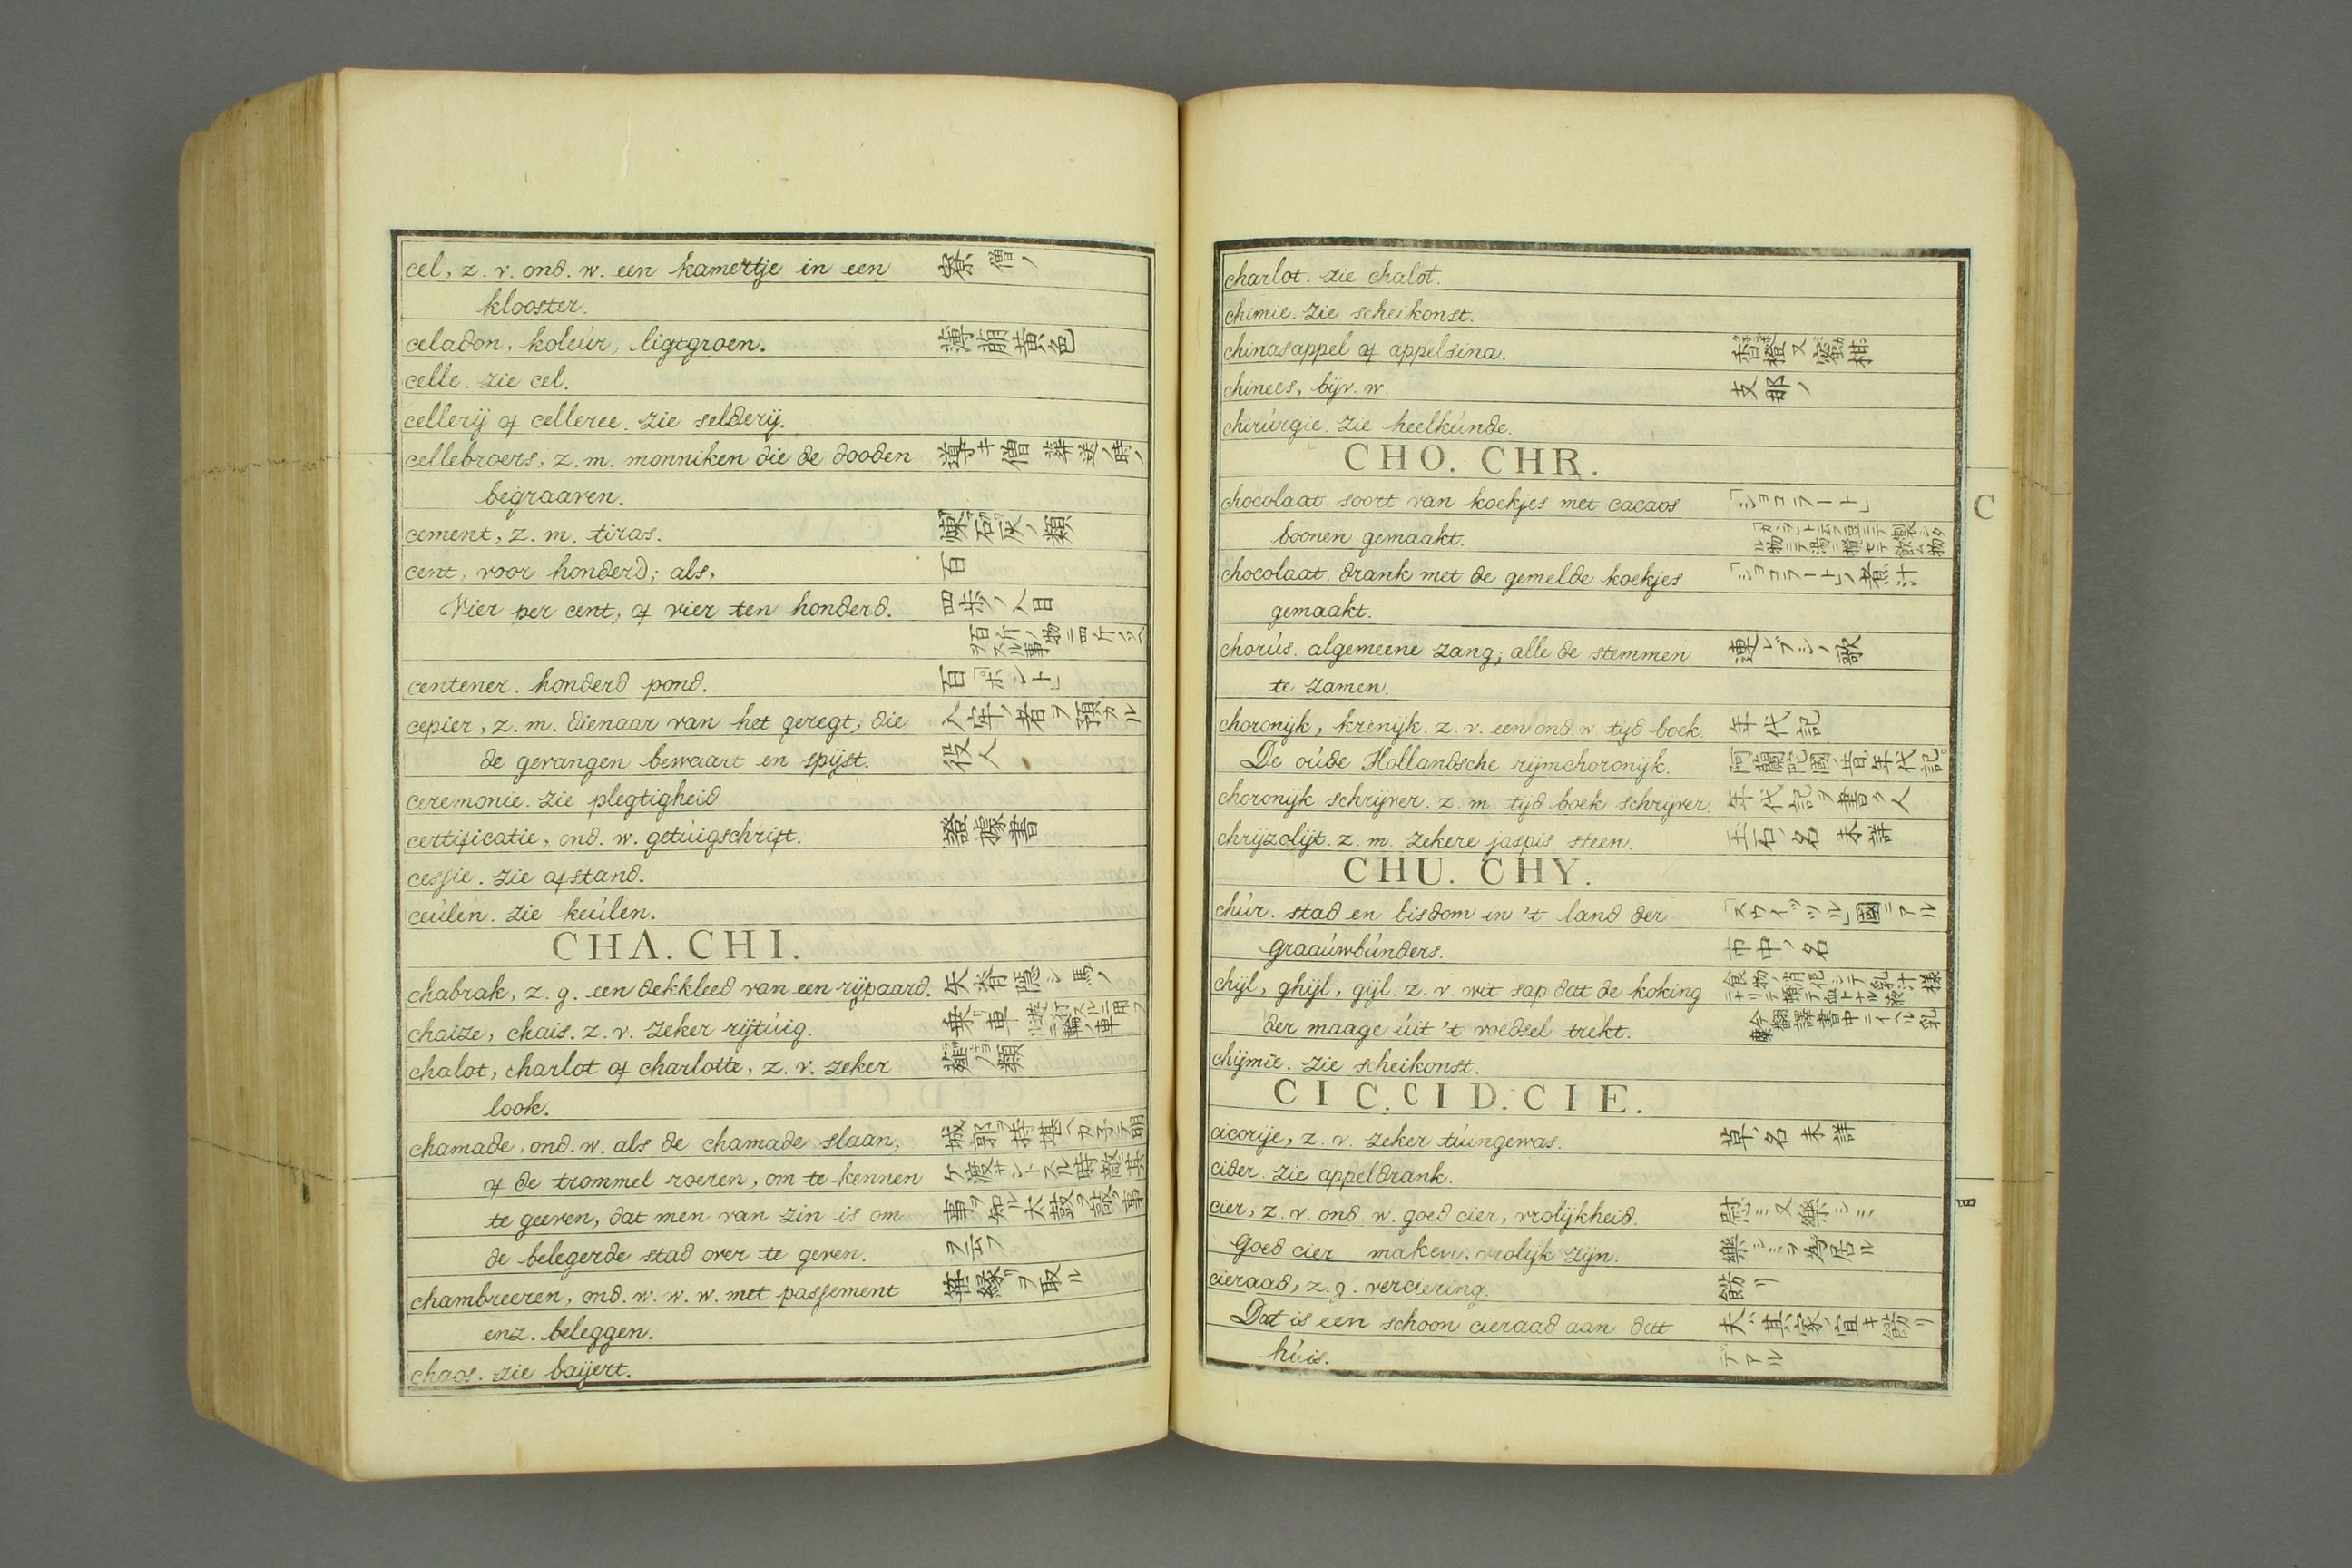 cel, z. v. ond. w. een kamertje in een 寮 僧ノ
klooster.
celadon, koleúr, ligtgroen. 薄萌黄色
celle. zie cel.
cellerij of celleree. zie selderij.
cellebroers, z. m. monniken die de dooden 導キ僧 葬送ノ時ノ
begraaven.
cement, z. m. tiras. 煉石灰ノ類
cent, voor honderd; als, 百
Vier per cent, of vier ten honderd. 四歩ノ入目
百斤ノ物ニ四斤
centener. honderd pond. 百「ポント」
cepier, z. m. dienaar van het geregt, die 入牢ノ者ヲ預カル
de gevangen bewaart en spijst. 役人
ceremonie. zie plegtigheid
certificatie, ond. w. getúigschrift. 證據書
cessie. zie afstand.
ceúlen. zie keúlen.
CHA. CHI.
chabrak, z. g. een dekkleed van een rijpaard.
chaize, chais. z. v. zeker rijtúig. 乗リ車
chalot, charlot of charlotte, z. v. zeker 薤ノ類
look.
chamade, ond. w. als de chamade slaan, 城郭ヲ持堪ヘカ子テ明
of de trommel roeren, om te kennen ケ渡サントスル時敵ヘ其
te geeven, dat men van zin is om 事ヲ知ル太鼓ヲ敲ク事
de belegerde stad over te geven. ヲ云フ
chambreeren, ond. w. w. w. met passement 縁リヲ取ル
enz. beleggen.
chaos. zie baijert.
charlot. zie chalot.
chimie. zie scheikonst.
chinasappel of appelsina. 香橙 又 蜜柑
chinees, bijv. w. 支那ノ
chirúrgie. zie heelkúnde.
CHO. CHR.
chocolaat. soort van koekjes met cacaos 「ショコラート」
boonen gemaakt.
chocolaat. drank met de gemelde koekjes 「ショコラート」ノ煮汁
gemaakt.
chorús. algemeene zang; alle de stemmen 連レブシノ歌
te zamen.
choronijk, krenijk. z. v. een ond. w. tijd boek. 年代記
De oúde Hollandsche rijmchoronijk. 阿蘭陀國ノ昔ノ年代記。
choronijk schrijver. z. m. tijd boek schrijver. 年代記ヲ書ク人
chrijzolijt. z. m. zekere jaspis steen. 玉石ノ名 未詳
CHU. CHY.
chúr. stad en bisdom in 't land der 「スウイッツル」國ニアル
graaúwbúnders. 市中ノ名
chijl, ghijl, gijl. z. v. wit sap dat de koking
der maage úit 't voedsel trekt.
chijmie. zie scheikonst.
CIC. CID. CIE.
cicorije, z. v. zeker túingewas. 草ノ名 未詳
cider. zie appeldrank.
cier, z. v. ond. w. goed cier, vrolijkheid. 慰ミ又樂シミ
Goed cier maken, vrolijk zijn. 樂シミヲ為居ル
cieraad, z. g. verciering. 餝リ
Dat is een schoon cieraad aan dat 夫ハ其家ノ宜キ餝リ
húis. デアル
C